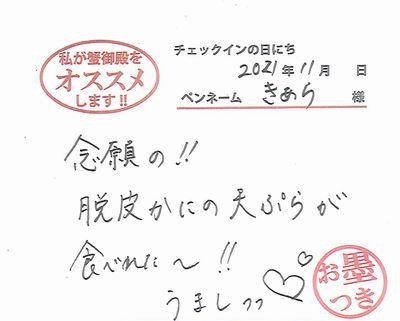 私が蟹御殿を
オススメ
します!!
チェックインの日にち
2021年11月　日
ペンネーム きあら 様
念願の!!
脱皮かにの天ぷらが
食べれた〜!!
うましッッ
お墨つき